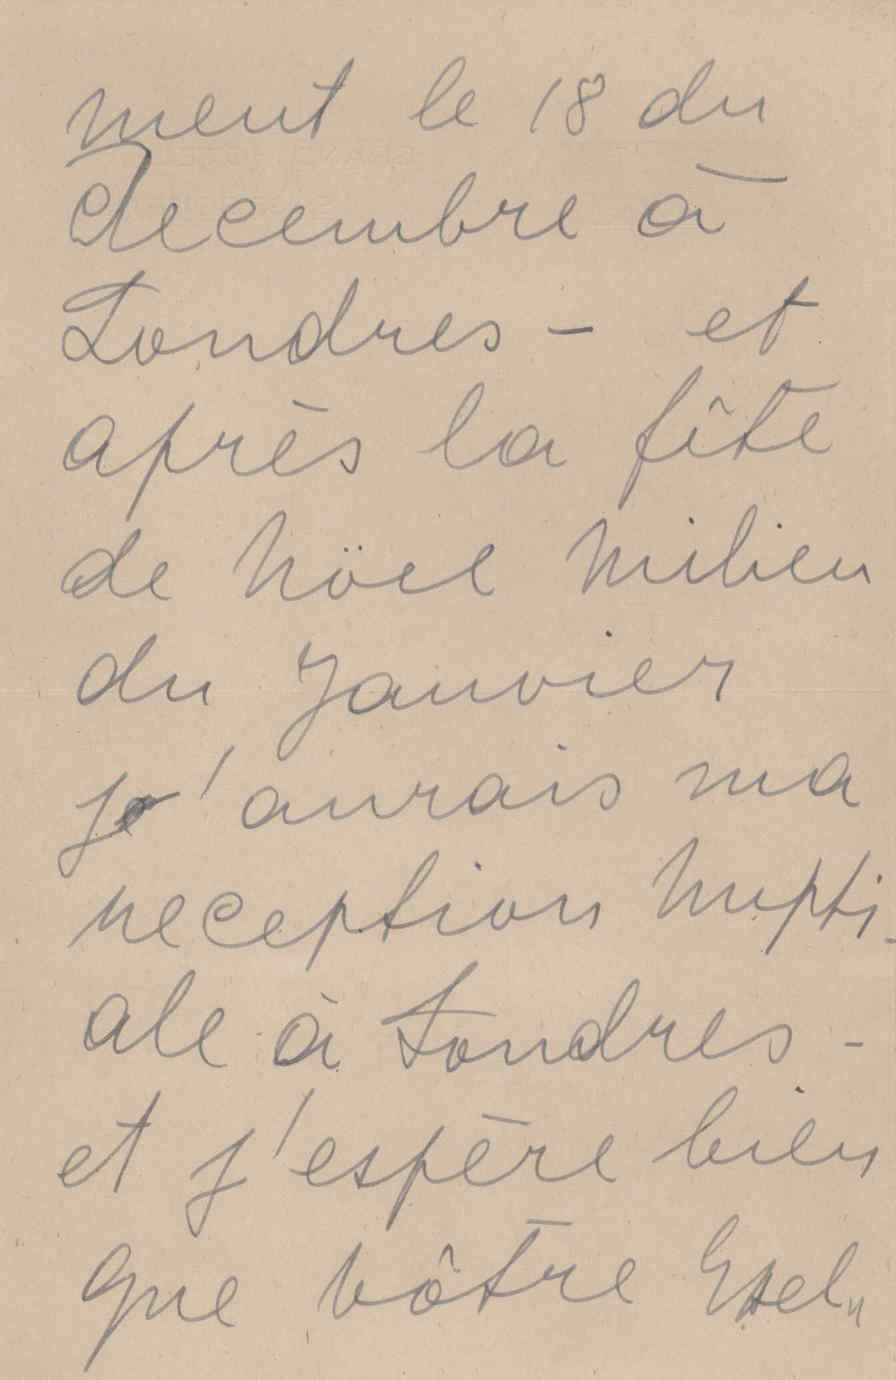 ment le 18 du
Decembre à
Londres - et
après la fête
de Nöel Milieu
du Janvier
j'aurais ma
reception Nupti-
ale à Londres -
et j'espère bien
que vôtre Exel„